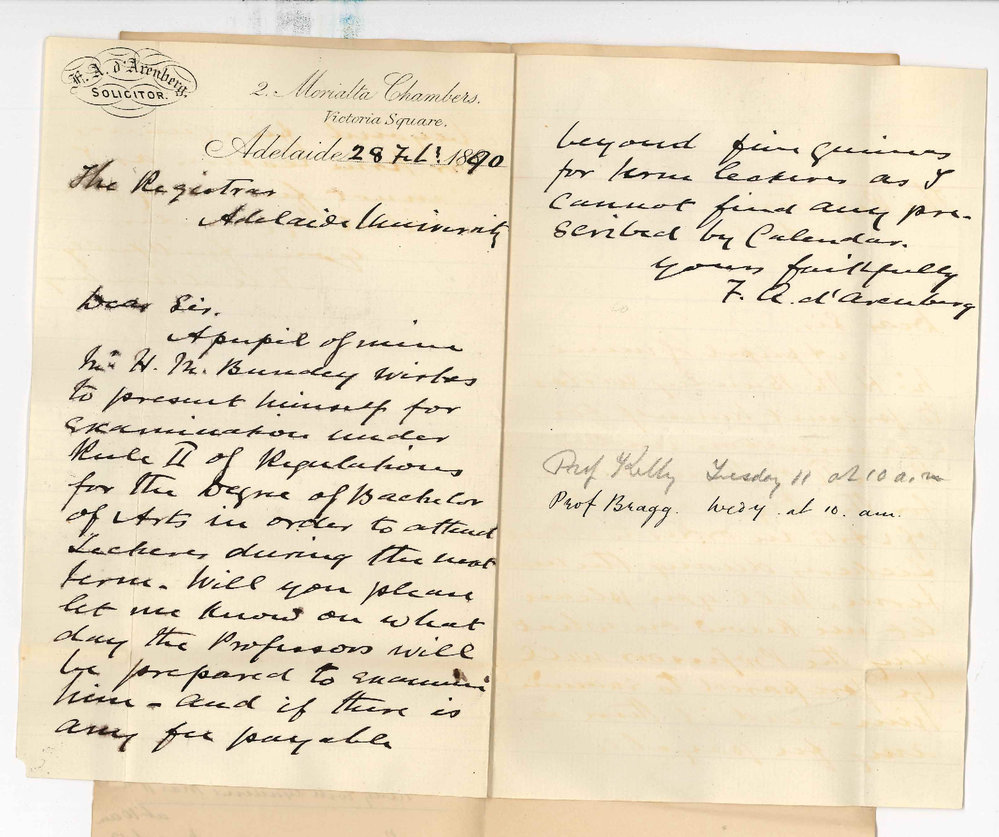 F. A. d'Arenberg.
SOLICITOR.
2. Morialta Chambers.
Victoria Square.
Adelaide 28 Feb 1890
The Registrar
Adelaide University
Dear Sir.
A pupil of mine
Mr H. M. Bundey wishes
to present himself for
examination under
Rule II of Regulations
for the Degree of Bachelor
of Arts in order to attend
Lectures during the next
term - Will you please
let me know on what
day the Professors will
be prepared to examine
him - and if there is
any fee payable
beyond five guineas
for term lectures as I
cannot find any pre-
scribed by Calendar.
yours faithfully
F. A. d'Arenberg
Prof Kelly Tuesday 11 at 10 a.m
Prof Bragg. Wedy. at 10. am.